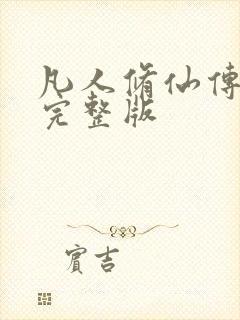 凡人脩仙傳
完整版
賓吉